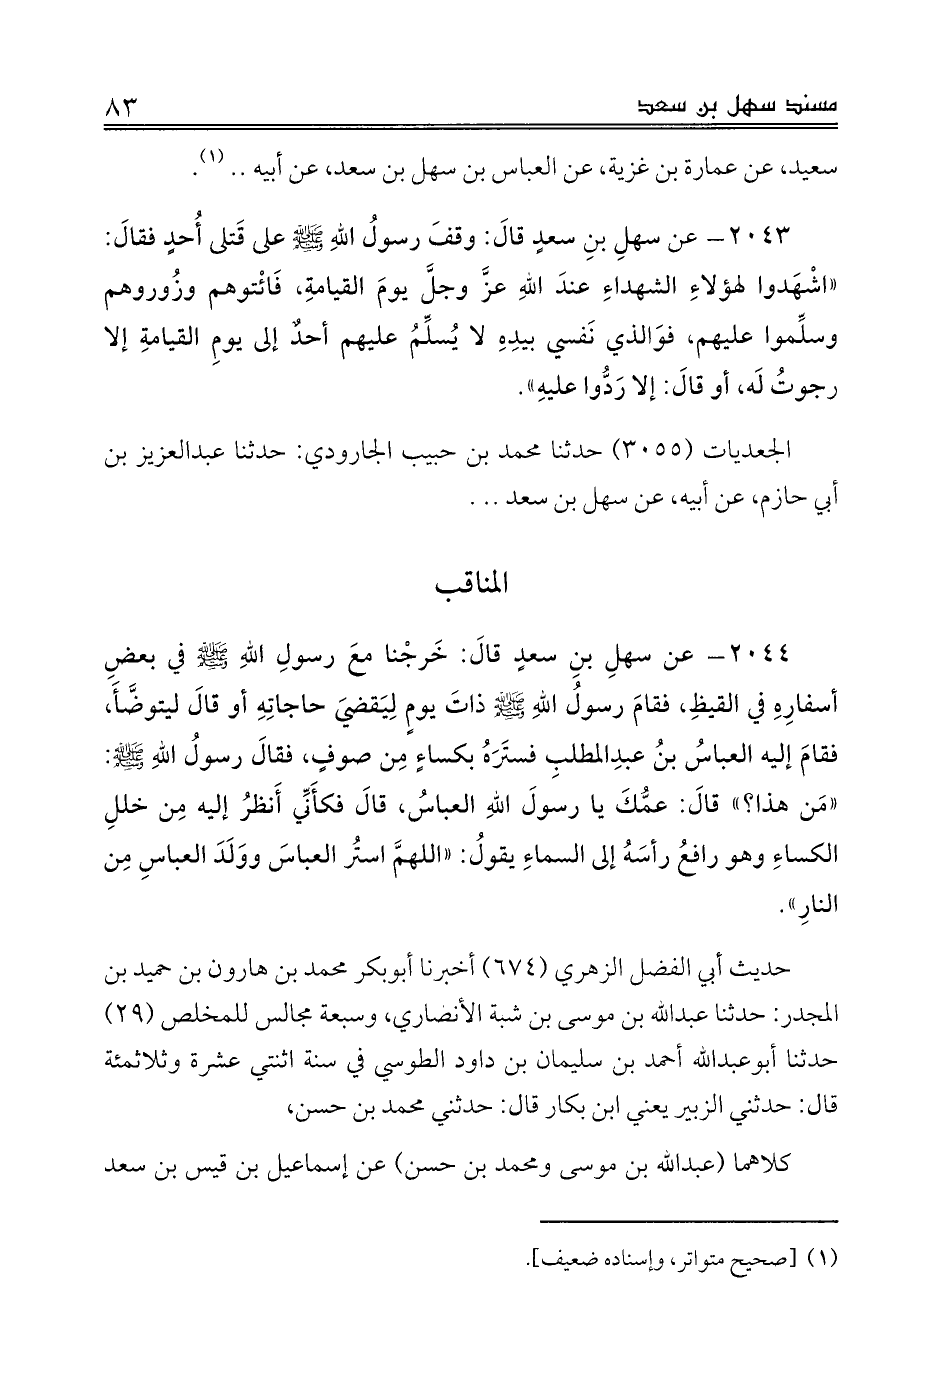 مسند سهل بن سعد ٨٣
سعيد، عن عمارة بن غزية، عن العباس بن سهل بن سعد، عن أبيه .. (١).
٢٠٤٣ – عن سهلِ بنِ سعدٍ قالَ: وقفَ رسولُ اللهِ ﷺ على قَتلى أُحدٍ فقالَ:
«اشْهَدوا لهؤلاءِ الشهداءِ عندَ اللهِ عزَّ وجلَّ يومَ القيامةِ، فَائْتوهم وزُوروهم
وسلِّموا عليهم، فوَالذي نَفسي بيدِهِ لا يُسلِّمُ عليهم أحدٌ إلى يومِ القيامةِ إلا
رجوتُ لَه، أو قالَ: إلا رَدُّوا عليهِ».
الجعديات (٣٠٥٥) حدثنا محمد بن حبيب الجارودي: حدثنا عبدالعزيز بن
أبي حازم، عن أبيه، عن سهل بن سعد ...
المناقب
٢٠٤٤ – عن سهلِ بنِ سعدٍ قالَ: خَرجْنا معَ رسولِ اللهِ ﷺ في بعضِ
أسفارِهِ في القيظِ، فقامَ رسولُ اللهِ ﷺ ذاتَ يومٍ لِيَقضيَ حاجاتِهِ أو قالَ ليتوضَّأَ،
فقامَ إليه العباسُ بنُ عبدِالمطلبِ فستَرَهُ بكساءٍ مِن صوفٍ، فقالَ رسولُ اللهِ ﷺ:
«مَن هذا؟» قالَ: عمُّكَ يا رسولَ اللهِ العباسُ، قالَ فكأَنِّي أَنظرُ إليه مِن خللِ
الكساءِ وهو رافعُ رأسَهُ إلى السماءِ يقولُ: «اللهمَّ استُر العباسَ ووَلَدَ العباسِ مِن
النارِ».
حديث أبي الفضل الزهري (٦٧٤) أخبرنا أبوبكر محمد بن هارون بن حميد بن
المجدر: حدثنا عبدالله بن موسى بن شبة الأنصاري، وسبعة مجالس للمخلص (٢٩)
حدثنا أبوعبدالله أحمد بن سليمان بن داود الطوسي في سنة اثنتي عشرة وثلاثمئة
قال: حدثني الزبير يعني ابن بكار قال: حدثني محمد بن حسن،
كلاهما (عبدالله بن موسى ومحمد بن حسن) عن إسماعيل بن قيس بن سعد
(١) [صحيح متواتر، وإسناده ضعيف].